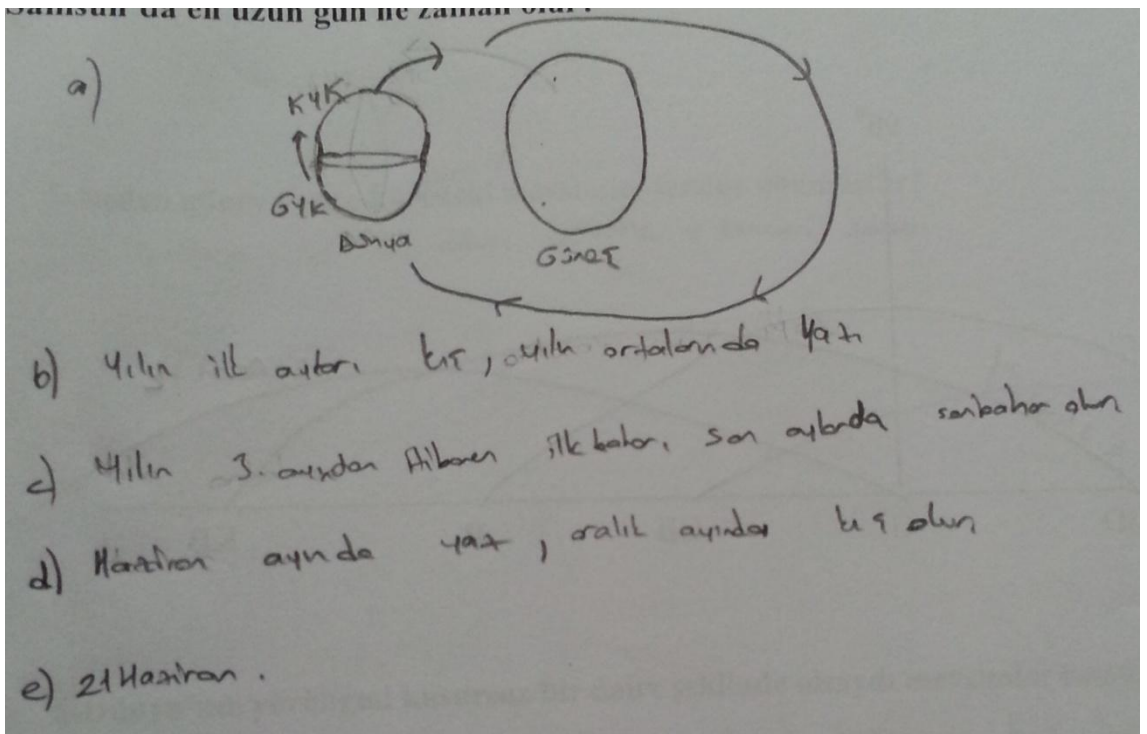 Samsun'da en uzun gün ne zaman olur?
a)
KYK
GYK
Dünya
Güneş
b) Yılın ilk ayları kış, yılın ortalarında yaz
c) Yılın 3. ayından itibaren ilkbahar, son aylarda sonbahar olur
d) Haziran ayında yaz, aralık ayında kış olur
e) 21 Haziran.